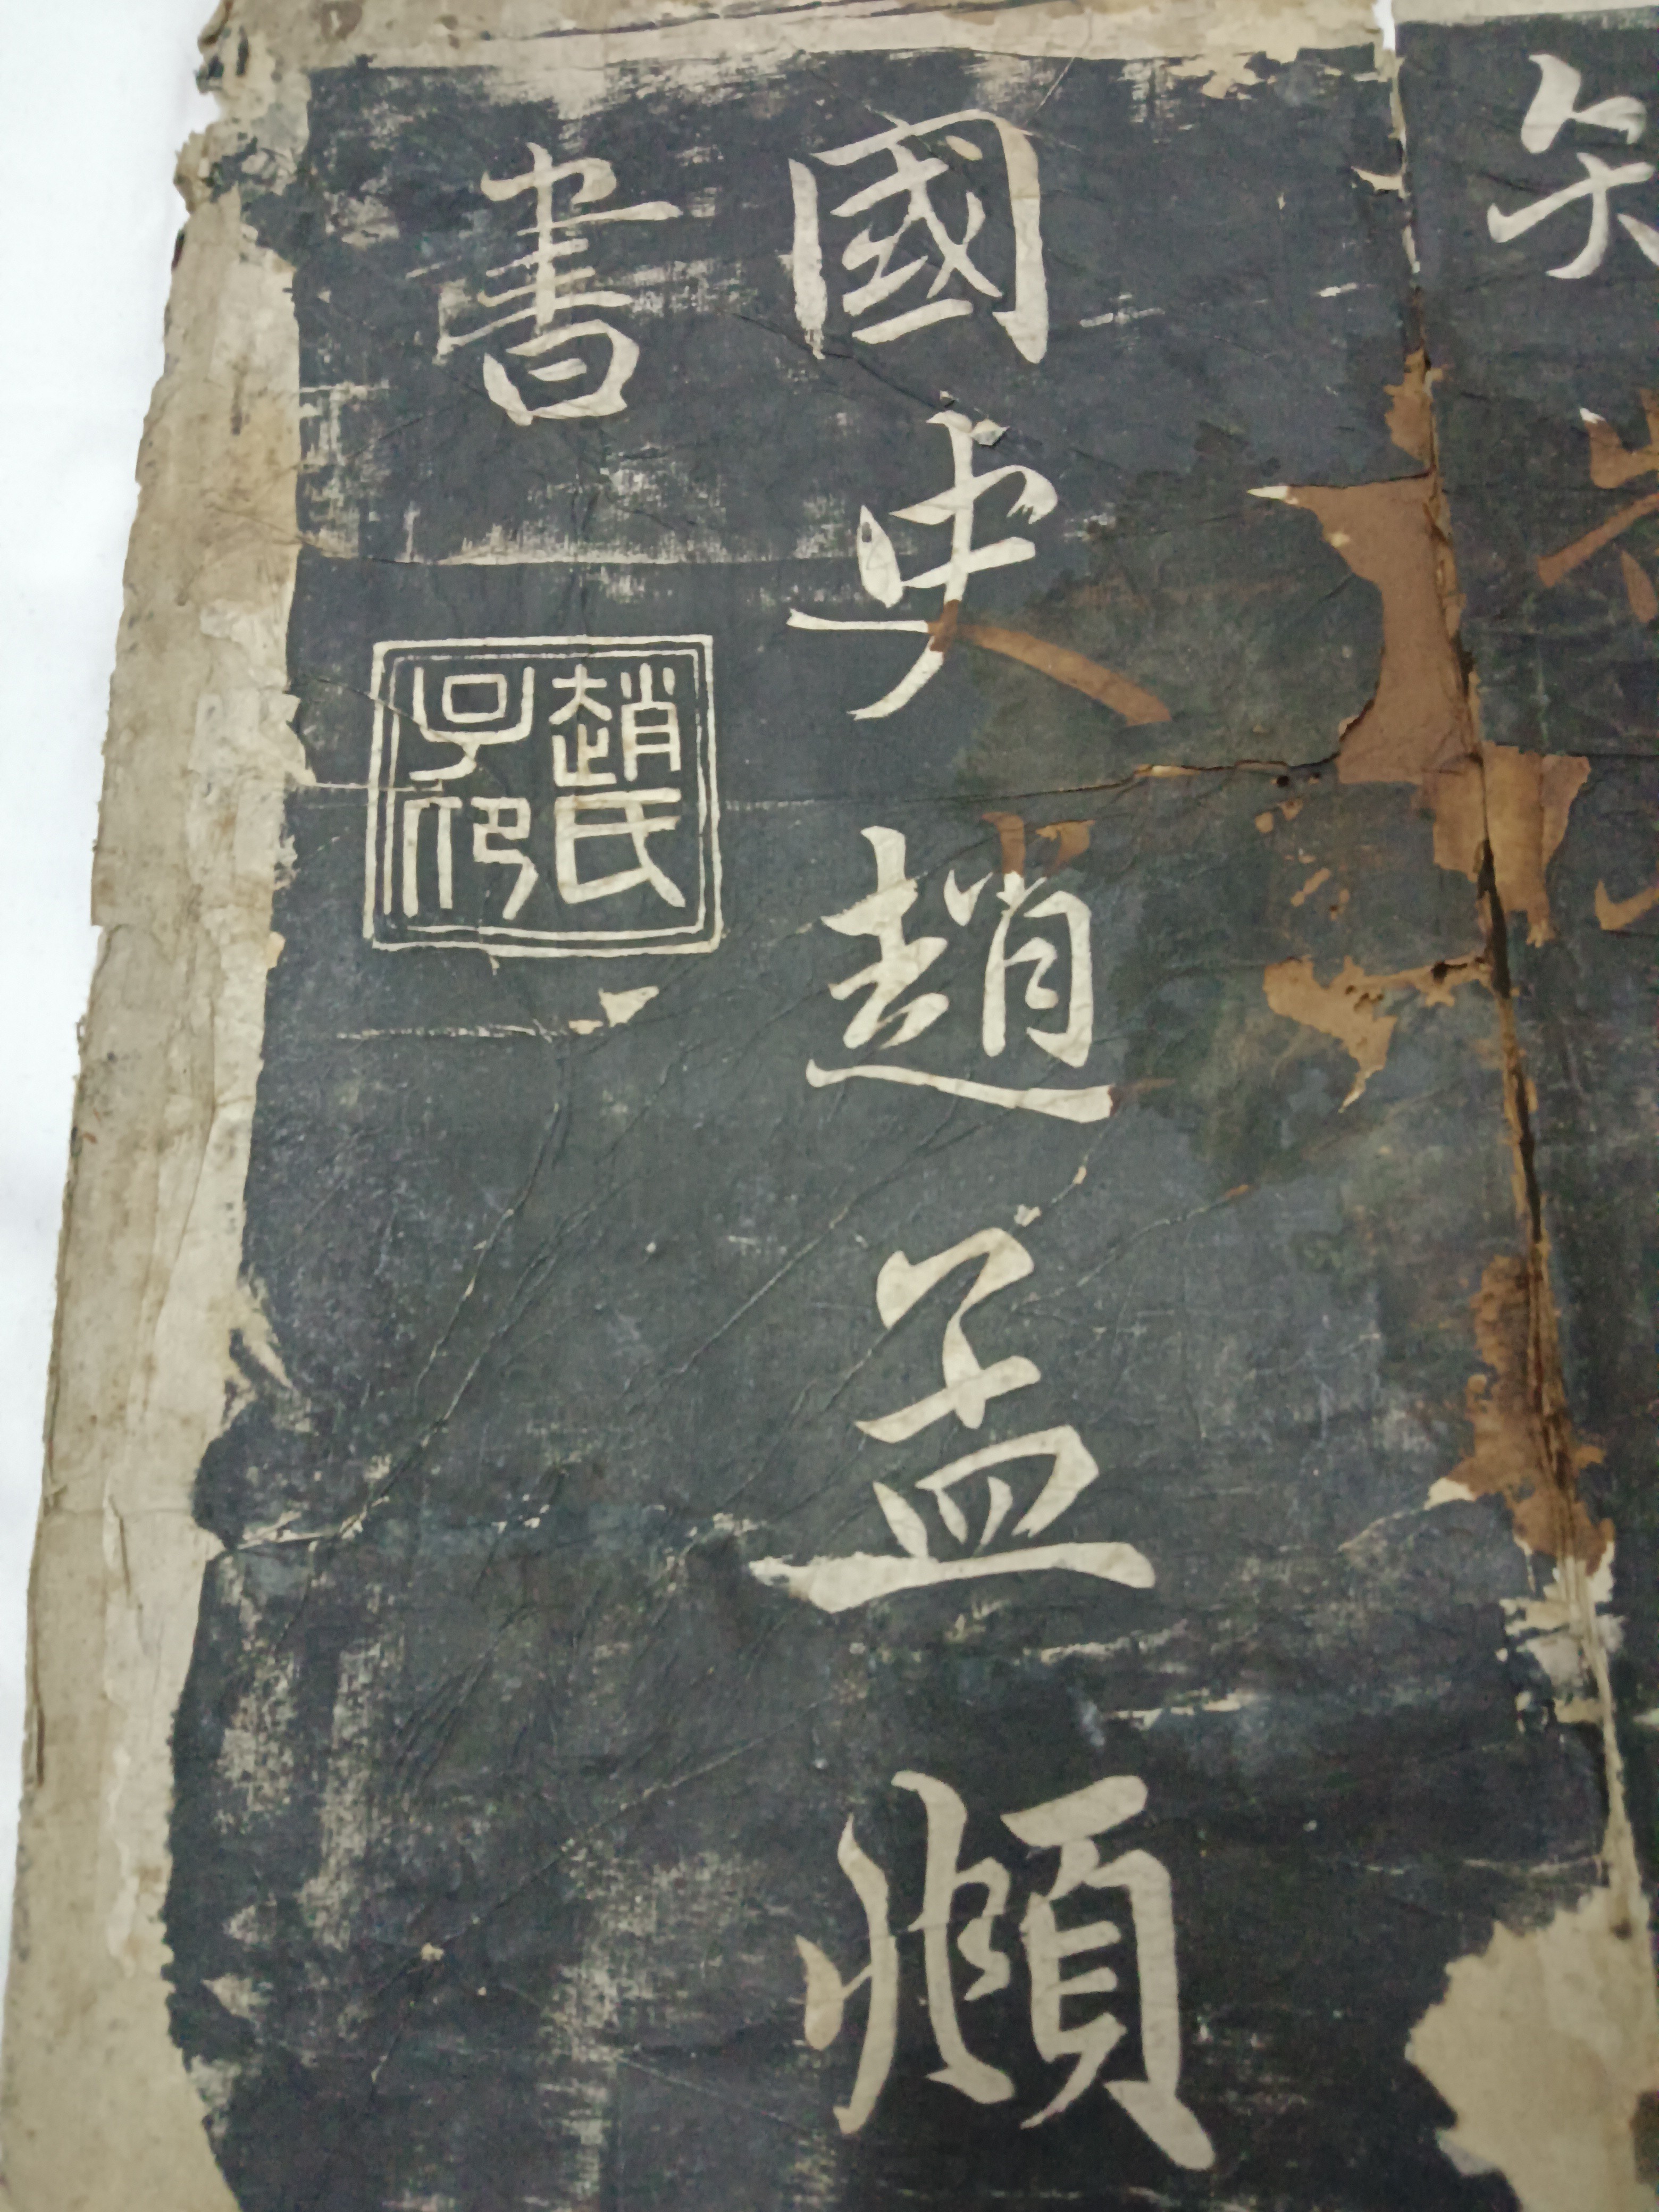 矣
國史趙孟頫
書
趙氏子印